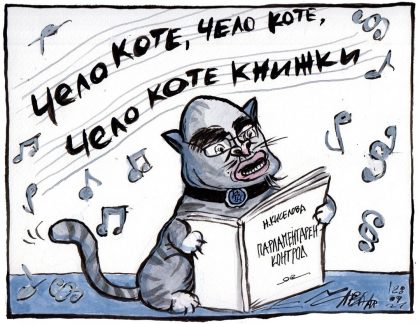 Чело коте, чело коте,
чело коте книжки
Н. Киселова
ПАРЛАМЕНТАРЕН
КОНТРОЛ